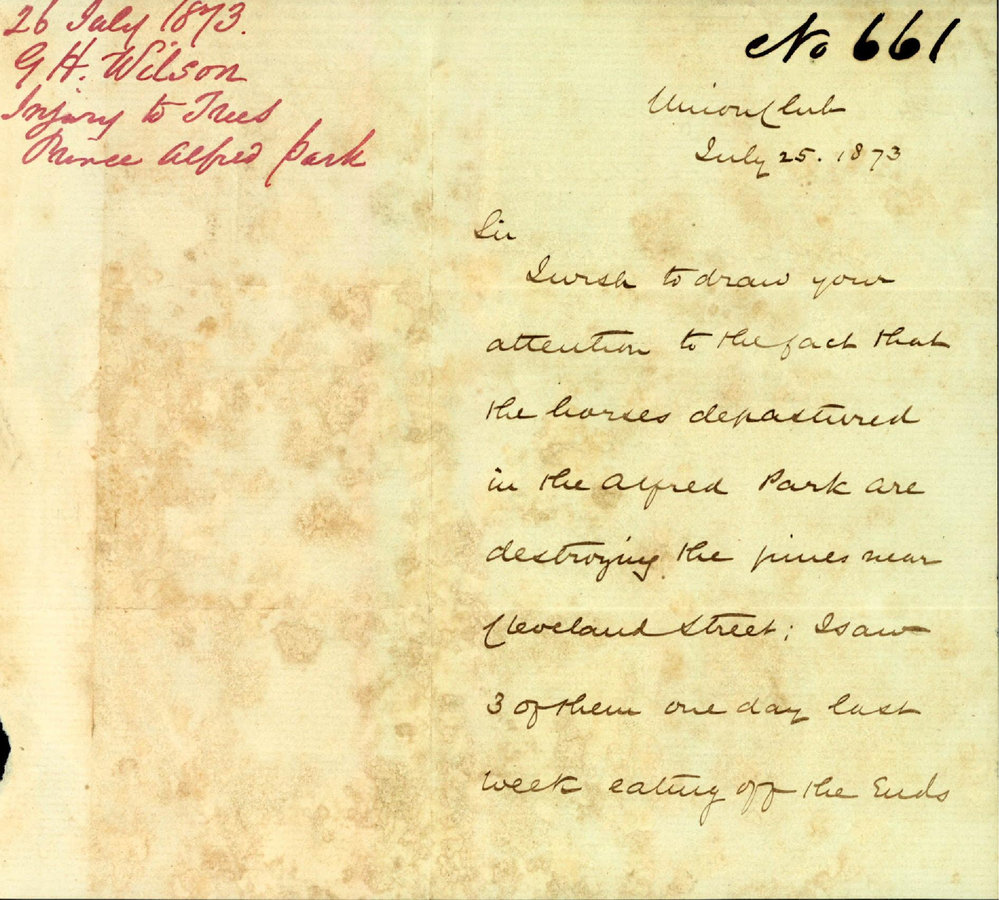 26 July 1873.
G H. Wilson
Injury to Trees
Prince Alfred Park
No 661
Union Club
July 25. 1873
Sir
I wish to draw your
attention to the fact that
the horses depastured
in the Alfred Park are
destroying the pines near
Cleveland Street; I saw
3 of them one day last
week eating off the Ends